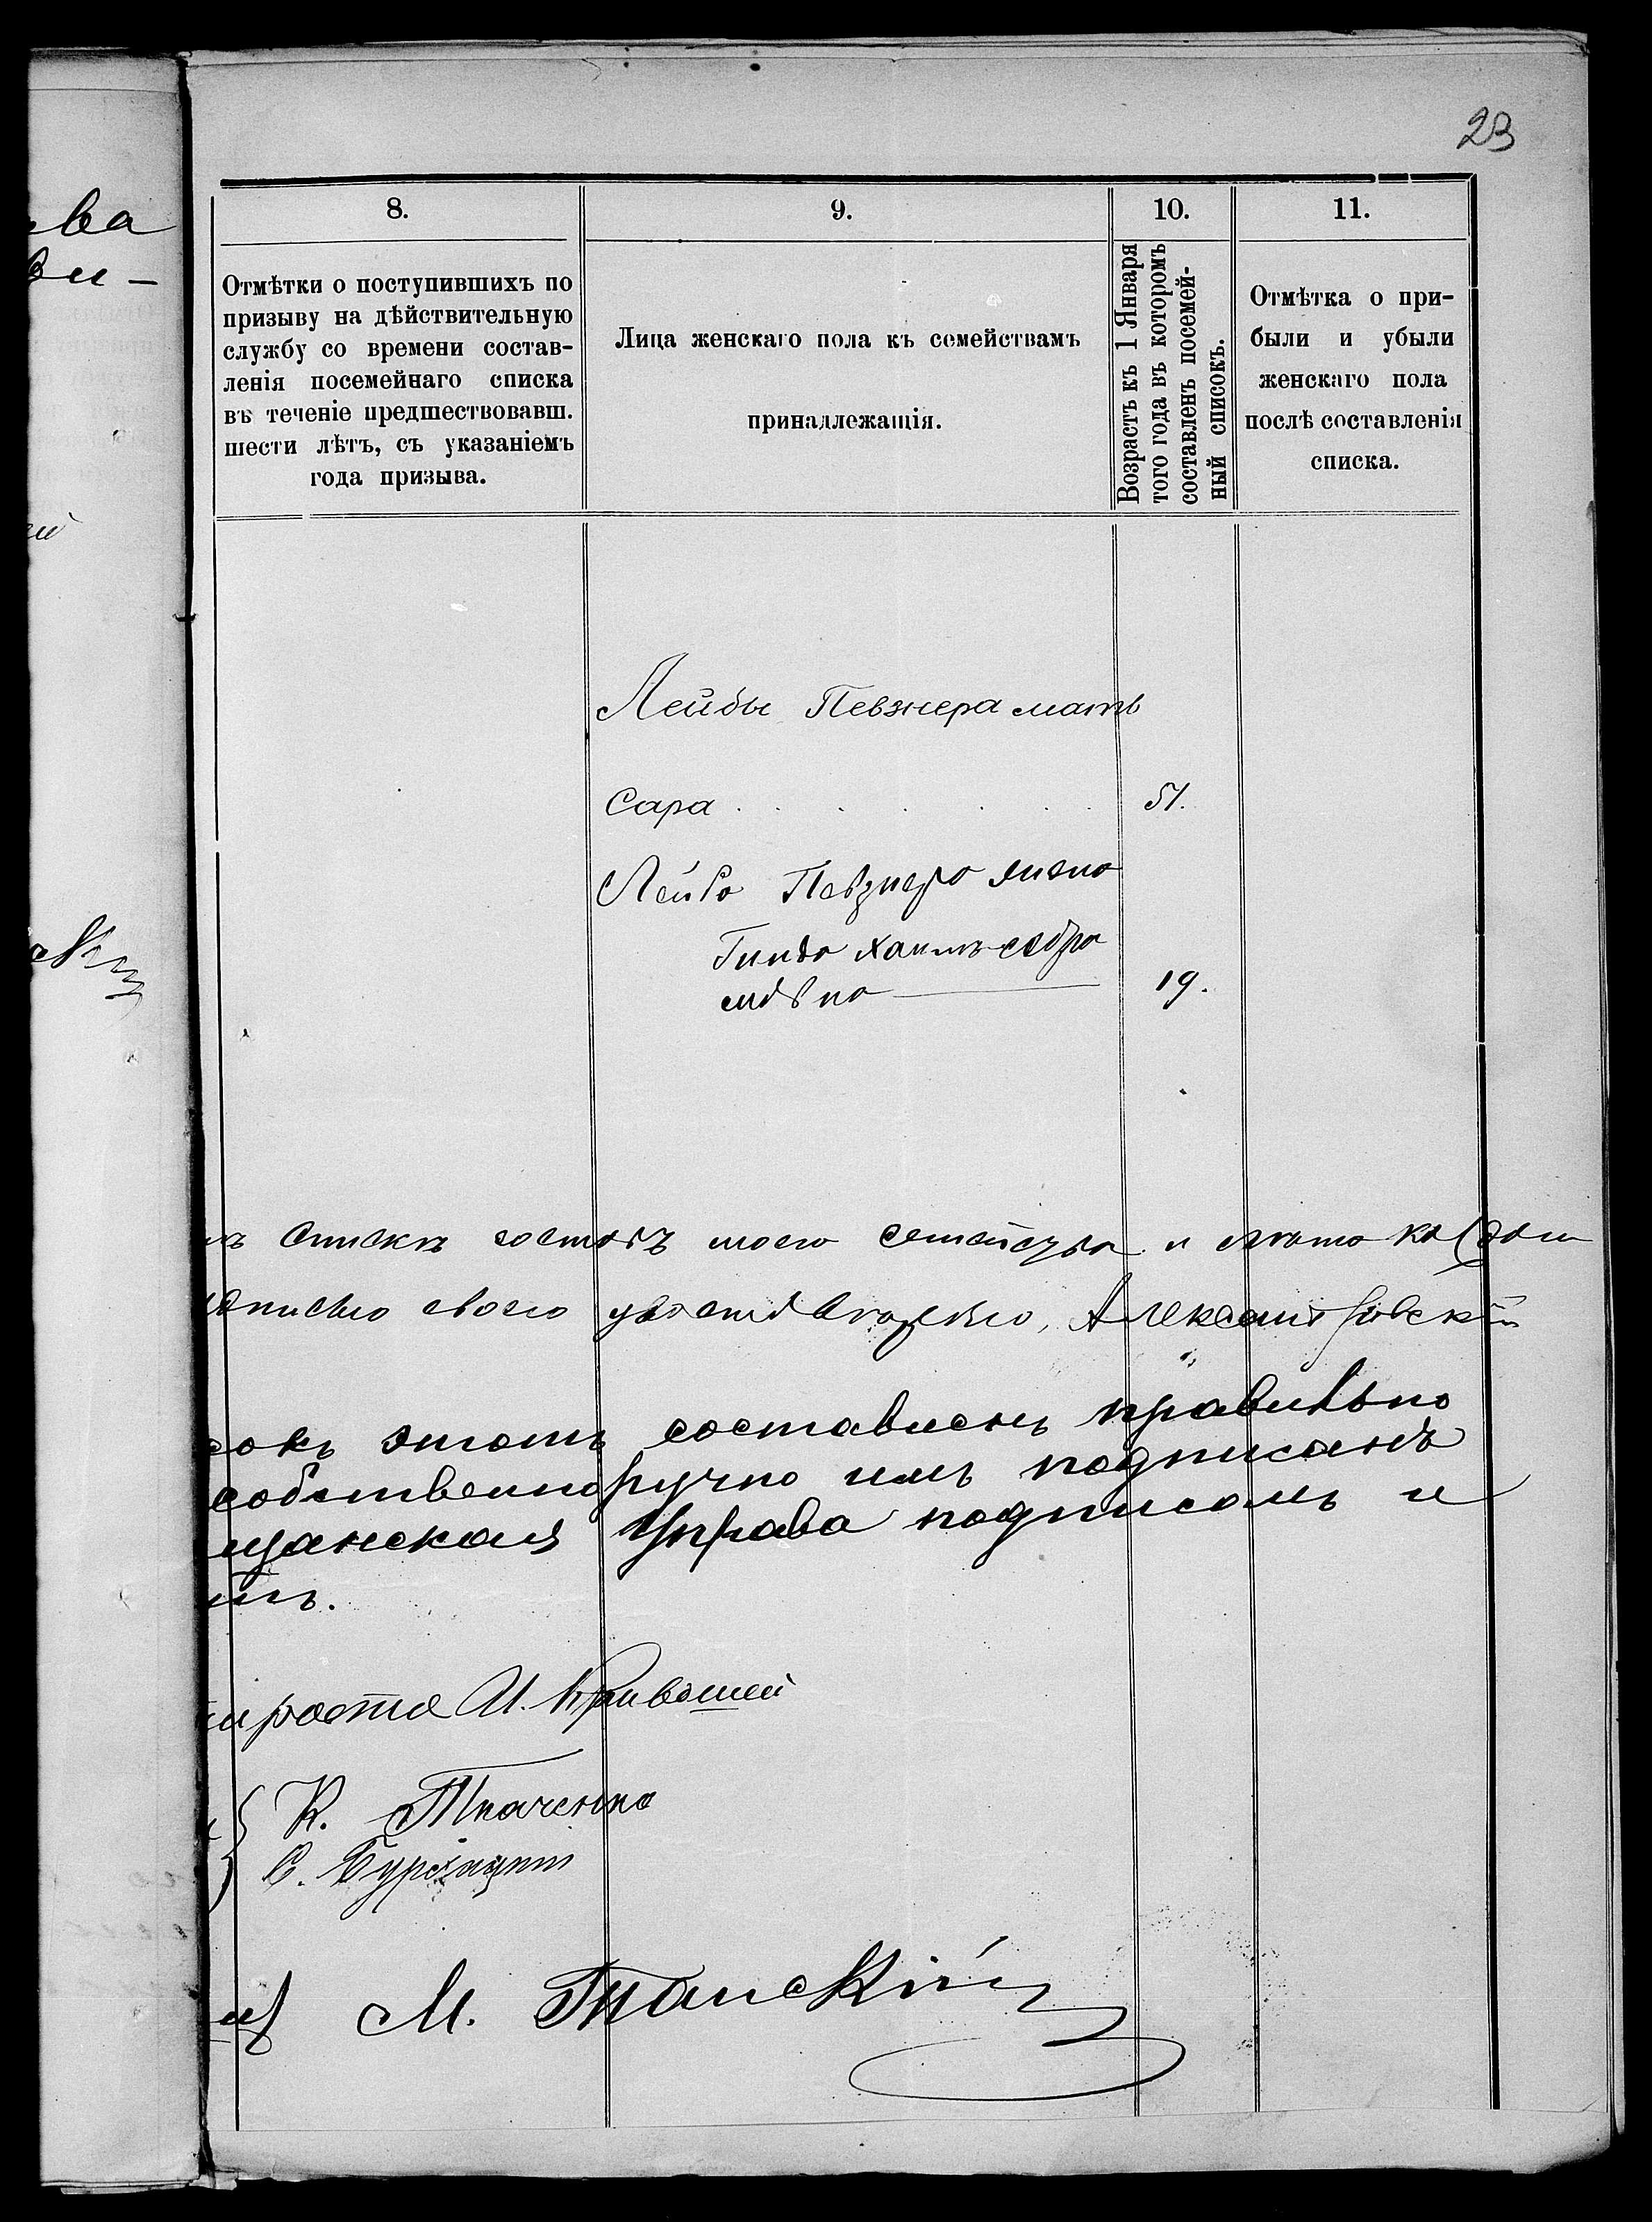 23
ва
ви-
8.
9.
10.
11.
Отмѣтки о поступившихъ по
призыву на дѣйствительную
службу со времени состав-
ленія посемейнаго списка
въ теченіе предшествовавш.
шести лѣтъ, съ указаніемъ
года призыва.
Лица женскаго пола къ семействамъ
принадлежащія.
Возрастъ къ 1 Января
того года въ которомъ
составленъ посемей-
ный списокъ.
Отмѣтка о при-
были и убыли
женскаго пола
послѣ составленія
списка.
Лейбы Певзнера мать
Сара . . . . . . 51.
Лейба Певзнера жена
Гинда Хаимъ-
19.
списки моего семейства и
своею
сокъ этотъ составленъ правильно
собственноручно имъ подписанъ
щанская Управа подписомъ и
мъ.
роста И. Кривошей
К. Ткаченко
М.